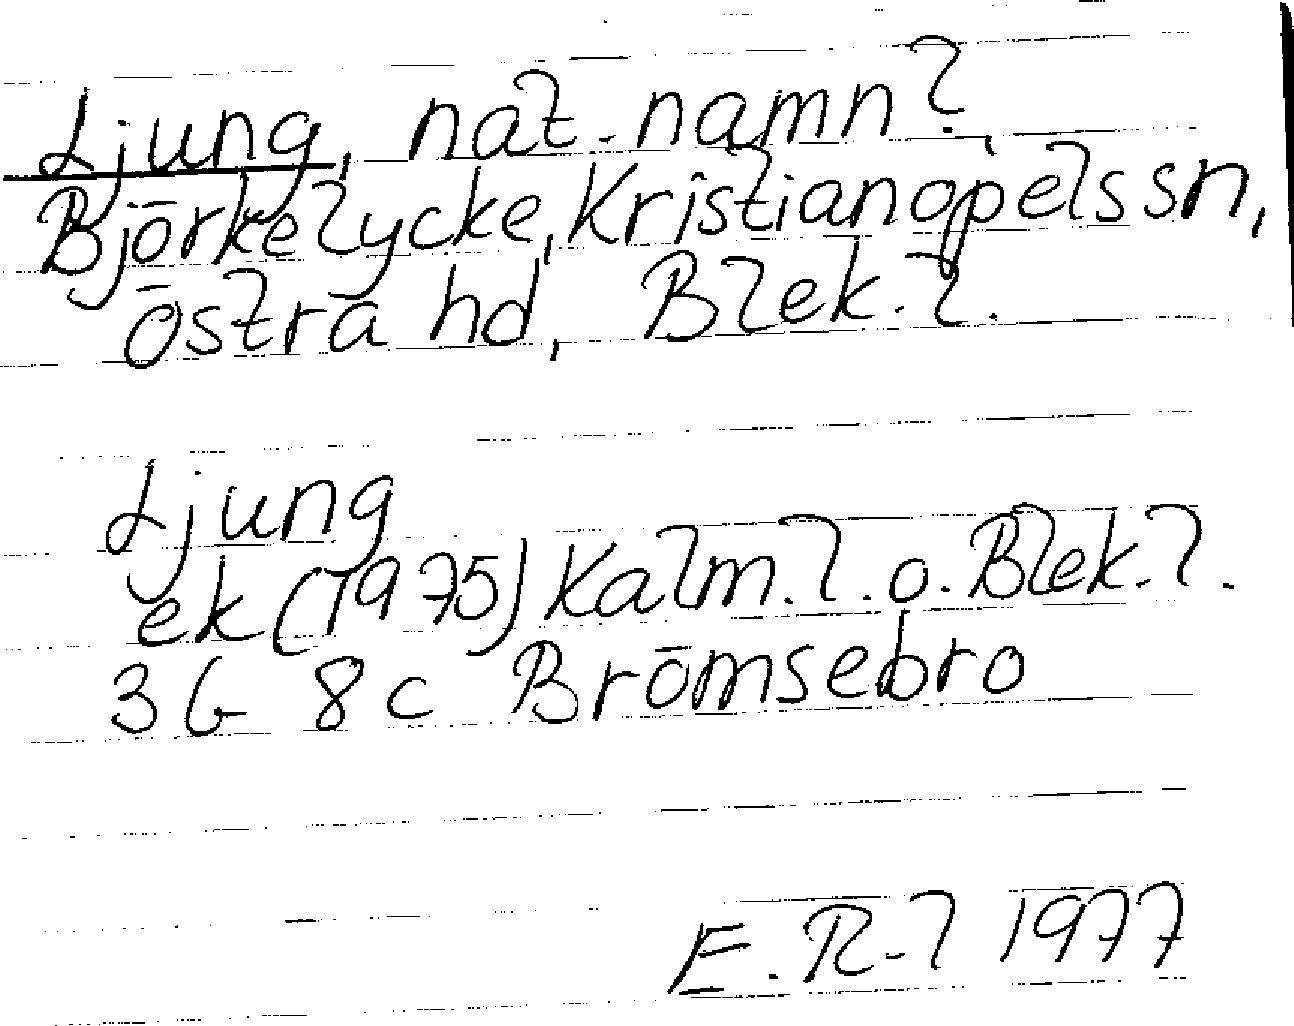 Ljung, nat. namn?
Björkelycke, Kristianopels sn,
Östra hd, Blek. l.
Ljung
ek (1975) Kalm. l. o. Blek. l.
3G 8c Brömsebro
E. R-l 1977